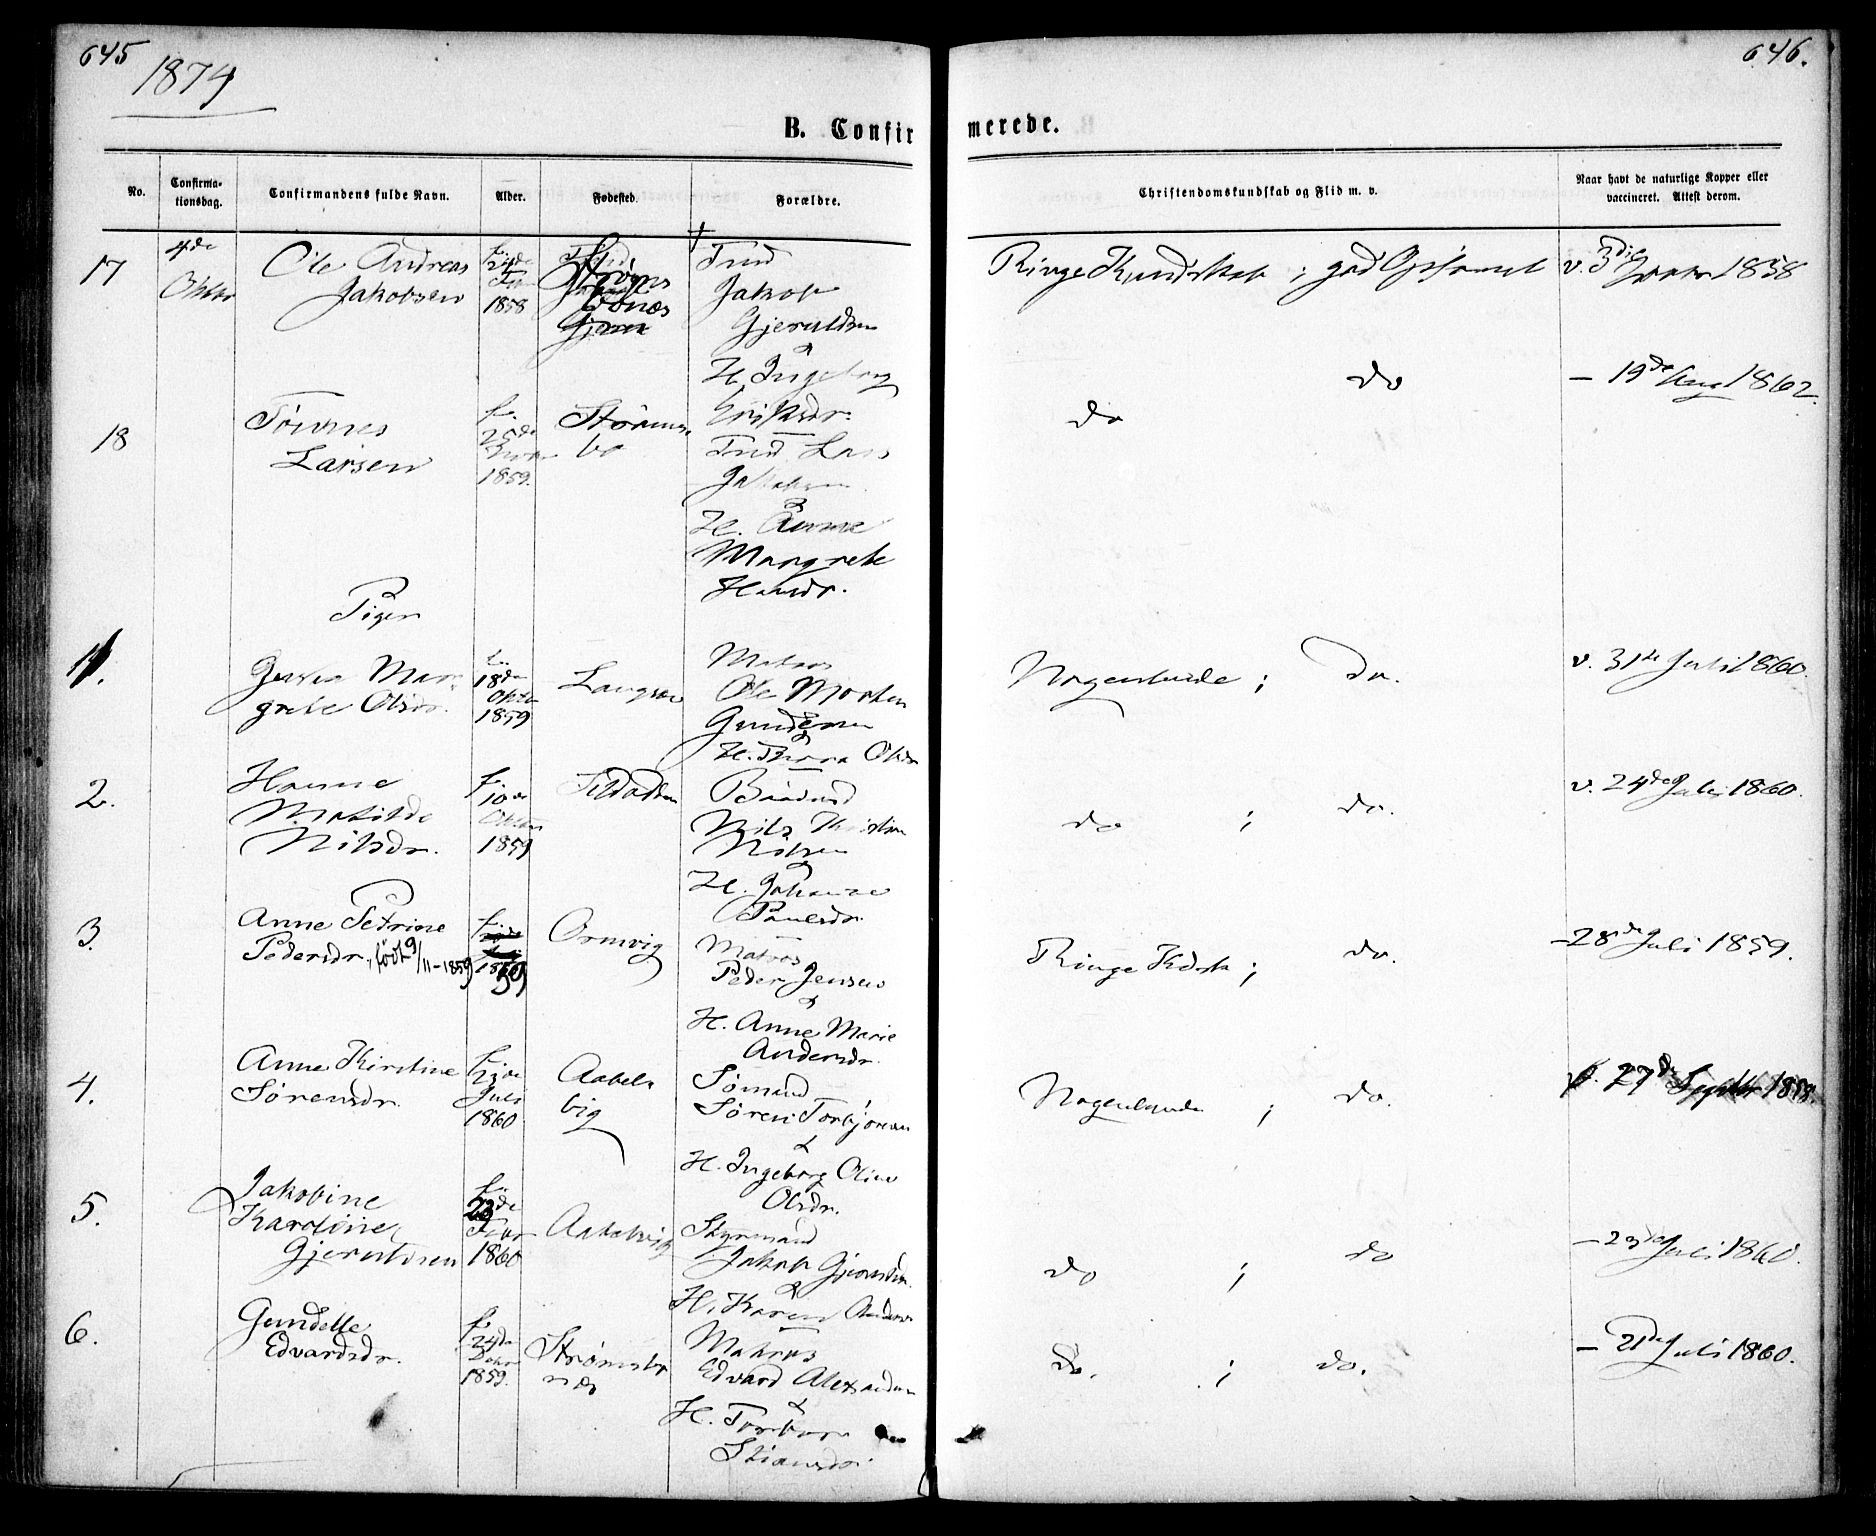 645
1874
646.
B. Confirmerede.
No.
Confirma-
tionsdag.
Confirmandens fulde Navn.
Alder.
Fødested.
Forældre.
Christendomskundskab og Flid m. v.
Naar havt de naturlige Kopper eller
vaccineret. Attest derom.
17
4de
Oktbr
Ole Andreas
Jakobsen
f.
1858
Strøms
bonæs
Jakob
Gjeruldsen
&
H. Ingeborg
Eriksdr.
Ringe Kundskab ; god Opførsel
v. 1858
18
Tønnes
Larsen
f.
25de
1859.
Strøms
bo
Lars
Jakobsen
&
H. Anne
Margrete
Hansdr.
do
do
– 19de Aug 1862.
Piger
1.
Mar
grete Olsdr.
f.
18de
Oktbr
1859
Langsæ
Matros
Ole Morten
Gundersen
&
H. Olsdr
Nogenlunde ; do.
v. 31te Juli 1860.
2.
Hanne
Matilde
Nilsdr.
f.
10de
Oktbr
1859
Nils Kristian
Nilsen
&
H. Johanne
Paulsdr.
do ; do.
v. 24de Juli 1860.
3.
Anne Petrine
Pedersdr., født 9/11–1859
f.
1859
Ormvig
Matros
Peder Jensen
&
H. Anne Marie
Andersdr.
Ringe Kdsk ; do.
–28de Juli 1859.
4.
Anne Kirstine
Sørensdr.
f.
Juli
1860
Aabels
vig
Sømand
Søren Torbjørnsen
&
H. Ingeborg Oline
Olsdr.
Nogenlunde ; do.
27de Septbr
5.
Jakobine
Karoline
Gjeruldsen
f.
1860
Aabelvig
Styrmand
Jakob Gjeruldsen
&
H. Karen Anders
do ; do
– Juli 1860.
6.
Gundelle
Edvardsdr.
f.
24de
Decbr
1859.
Strømsbo
næs
Matros
Edvard Alexandersen
&
H. Torbor
Stiansdr.
do. ; do.
– 21de Juli 1860.